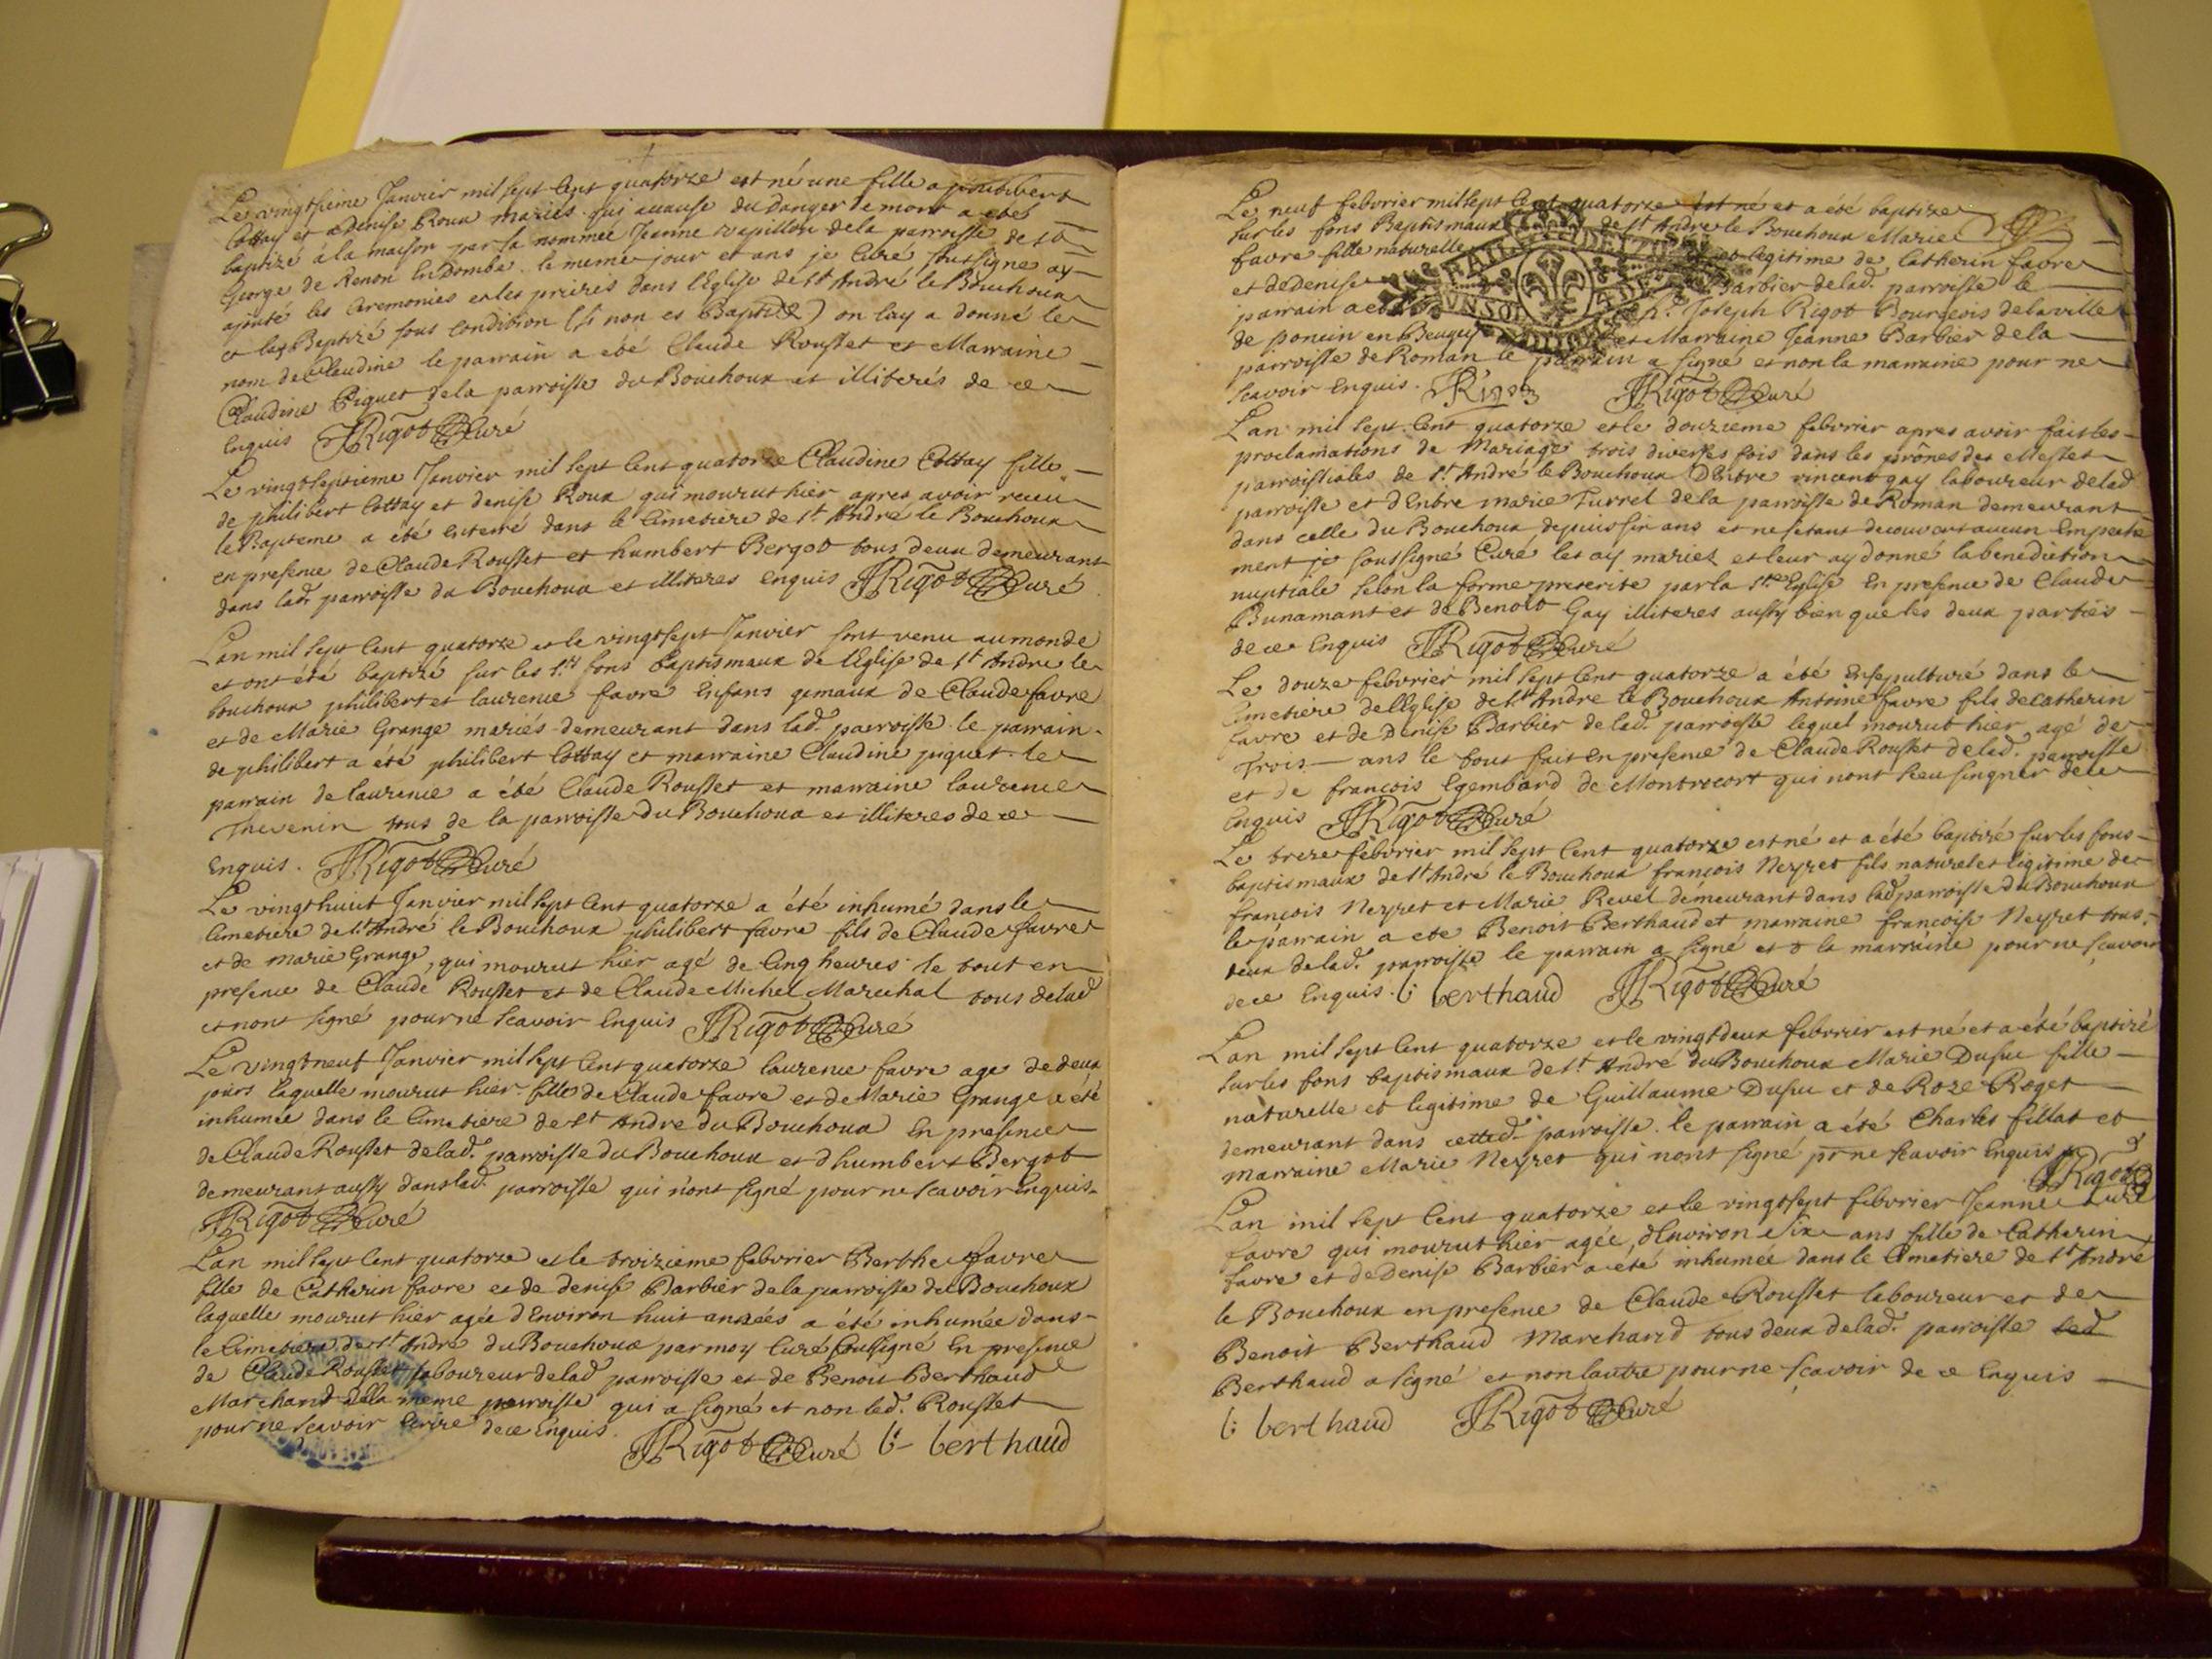 Le vingtsieme Janvier mil sept Cent quatorze est né une fille a philibert
Cottay et a denise Roux mariés qui acause du danger de mort a eté
baptizé à la maison par la nommée Jeanne papillon dela parroisse de st
George de Renon En dombe. le meme jour et ans je Curé soussigné ay
ajouté les Ceremonies et les prieres dans l'Eglise de St André le Bouchoux
et lay Baptizé sous condition (si non es Baptizé) on lay a donné le
nom de Claudine le parrain a été Claude Rousset et Marraine
Claudine Piquet dela parroisse du Bouchoux et illiterés de ce
Enquis JRigot Curé
Le vingtseptieme Janvier mil sept Cent quatorze Claudine Cottay fille
de philibert Cottay et denise Roux qui mourut hier apres avoir receu
le Bapteme a été enterré dans le Cimetiere de St André le Bouchoux
en presence de Claude Rousset et humbert Bergot tous deux demeurant
dans lad. parroisse du Bouchoux et illiteres enquis JRigot Curé
Lan mil sept Cent quatorze et le vingtsept Janvier sont venu au monde
et ont été baptizé sur les sts fons baptismaux de l'Eglise de St Andre le
bouchoux philibert et laurence favre Enfans gemaux de Claude favre
et de Marie Grange mariés demeurant dans lad. parroisse le parrain
de philibert a été philibert Cottay et marraine Claudine piquet le
parrain de laurence a été Claude Rousset et marraine laurence
Thevenin tous de la parroisse du Bouchoux et illiteres de ce
Enquis. JRigot Curé
Le vingthuit Janvier mil sept Cent quatorze a été inhumé dans le
Cimetiere de St André le Bouchoux philibert favre fils de Claude favre
et de marie Grange, qui mourut hier agé de Cinq heures le tout en
presence de Claude Rousset et de Claude Michel Marechal tous delad
et nont signé pour ne scavoir Enquis JRigot Curé
Le vingtneuf Janvier mil sept Cent quatorze laurence favre age de deux
jours laquelle mourut hier fille de Claude favre et de Marie Grange a été
inhumée dans le Cimetiere de St Andre du Bouchoux En presence
de Claude Rousset delad. parroisse du Bouchoux et dhumbert Bergot
demeurant aussy dans lad. parroisse qui n'ont signé pour ne scavoir Enquis
JRigot Curé
Lan mil sept Cent quatorze et le troizieme febvrier Berthe favre
fille de Catherin favre et de denise Barbier dela parroisse du Bouchoux
laquelle mourut hier agée d'Environ huit années a été inhumée dans
le Cimetiere de St André du Bouchoux par moy Curé soussigné En presence
de Claude Rousset laboureur delad parroisse et de Benoit Berthaud
Marchand dela meme parroisse qui a signé et non led. Rousset
pour ne scavoir Ecrire de ce Enquis.
JRigot Curé b- berthaud
Le neuf febvrier mil sept Cent quatorze est né et a été baptize
sur les fons Baptismaux de St André le Bouchoux Marie
favre fille naturelle et legitime de Catherin favre
et de Denise Barbier delad. parroisse le
parrain a eté Sr. Joseph Rigot Bourgeois de la ville
de poncin en Beugey et Marraine Jeanne Barbier de la
parroisse de Roman le parrain a signé et non la marraine pour ne
scavoir Enquis. Rigot JRigot Curé
Lan mil sept Cent quatorze et le douzieme febvrier apres avoir fait les
proclamations de Mariage trois diverses fois dans les prônes des Messes
parroissiales de St André le Bouchoux D'Entre vincent gay laboureur delad
parroisse et d'Entre marie Turrel de la parroisse de Roman demeurant
dans celle du Bouchoux depuis six ans et ne setant decouvert aucun Empeche
ment je soussigné Curé les ay mariez et leur ay donné la benediction
nuptiale selon la forme prescrite par la Ste Eglise En presence de Claude
Bunamant et de Benoit Gay illiteres aussy bien que les deux parties
de ce Enquis JRigot Curé
Le douze febvrier mil sept Cent quatorze a été Ensepulturé dans le
Cimetiere de l'Eglise de St Andre le Bouchoux Antoine favre fils de Catherin
favre et de Denise Barbier de lad. parroisse lequel mourut hier agé de
Trois ans le tout fait en presence de Claude Rousset delad. parroisse
et de françois Egembard de Montrocort qui nont sceu singner de ce
Enquis JRigot Curé
Le treze febvrier mil sept Cent quatorze est né et a été baptizé sur les fons
baptismaux de St André le Bouchoux françois Neyret fils naturel et legitime de
françois Neyret et Marie Revel demeurant dans lad parroisse du Bouchoux
le parrain a ete Benoit Berthaud et marraine françoise Neyret tous
deux delad. parroisse le parrain a signé et la marraine pour ne scavoir
de ce Enquis. b: berthaud JRigot Curé
Lan mil sept Cent quatorze et le vingtdeux febvrier est né et a été baptizé
sur les fons baptismaux de St André du Bouchoux Marie Dufuc fille
naturelle et legitime de Guillaume Dufuc et de Roze Roget
demeurant dans cetted. parroisse. le parrain a été Charles fillat et
marraine Marie Neyret qui nont signé pr ne scavoir Enquis
JRigot Curé
Lan mil sept Cent quatorze et le vingtsept febvrier Jeanne
favre qui mourut hier agée, d'Environ Six ans fille de Catherin
favre et de Denise Barbier a eté inhumée dans le Cimetiere de St André
le Bouchoux en presence de Claude Rousset laboureur et de
Benoit Berthaud Marchand tous deux delad. parroisse led
Berthaud a signé et non lautre pour ne scavoir de ce Enquis
b: berthaud JRigot Curé